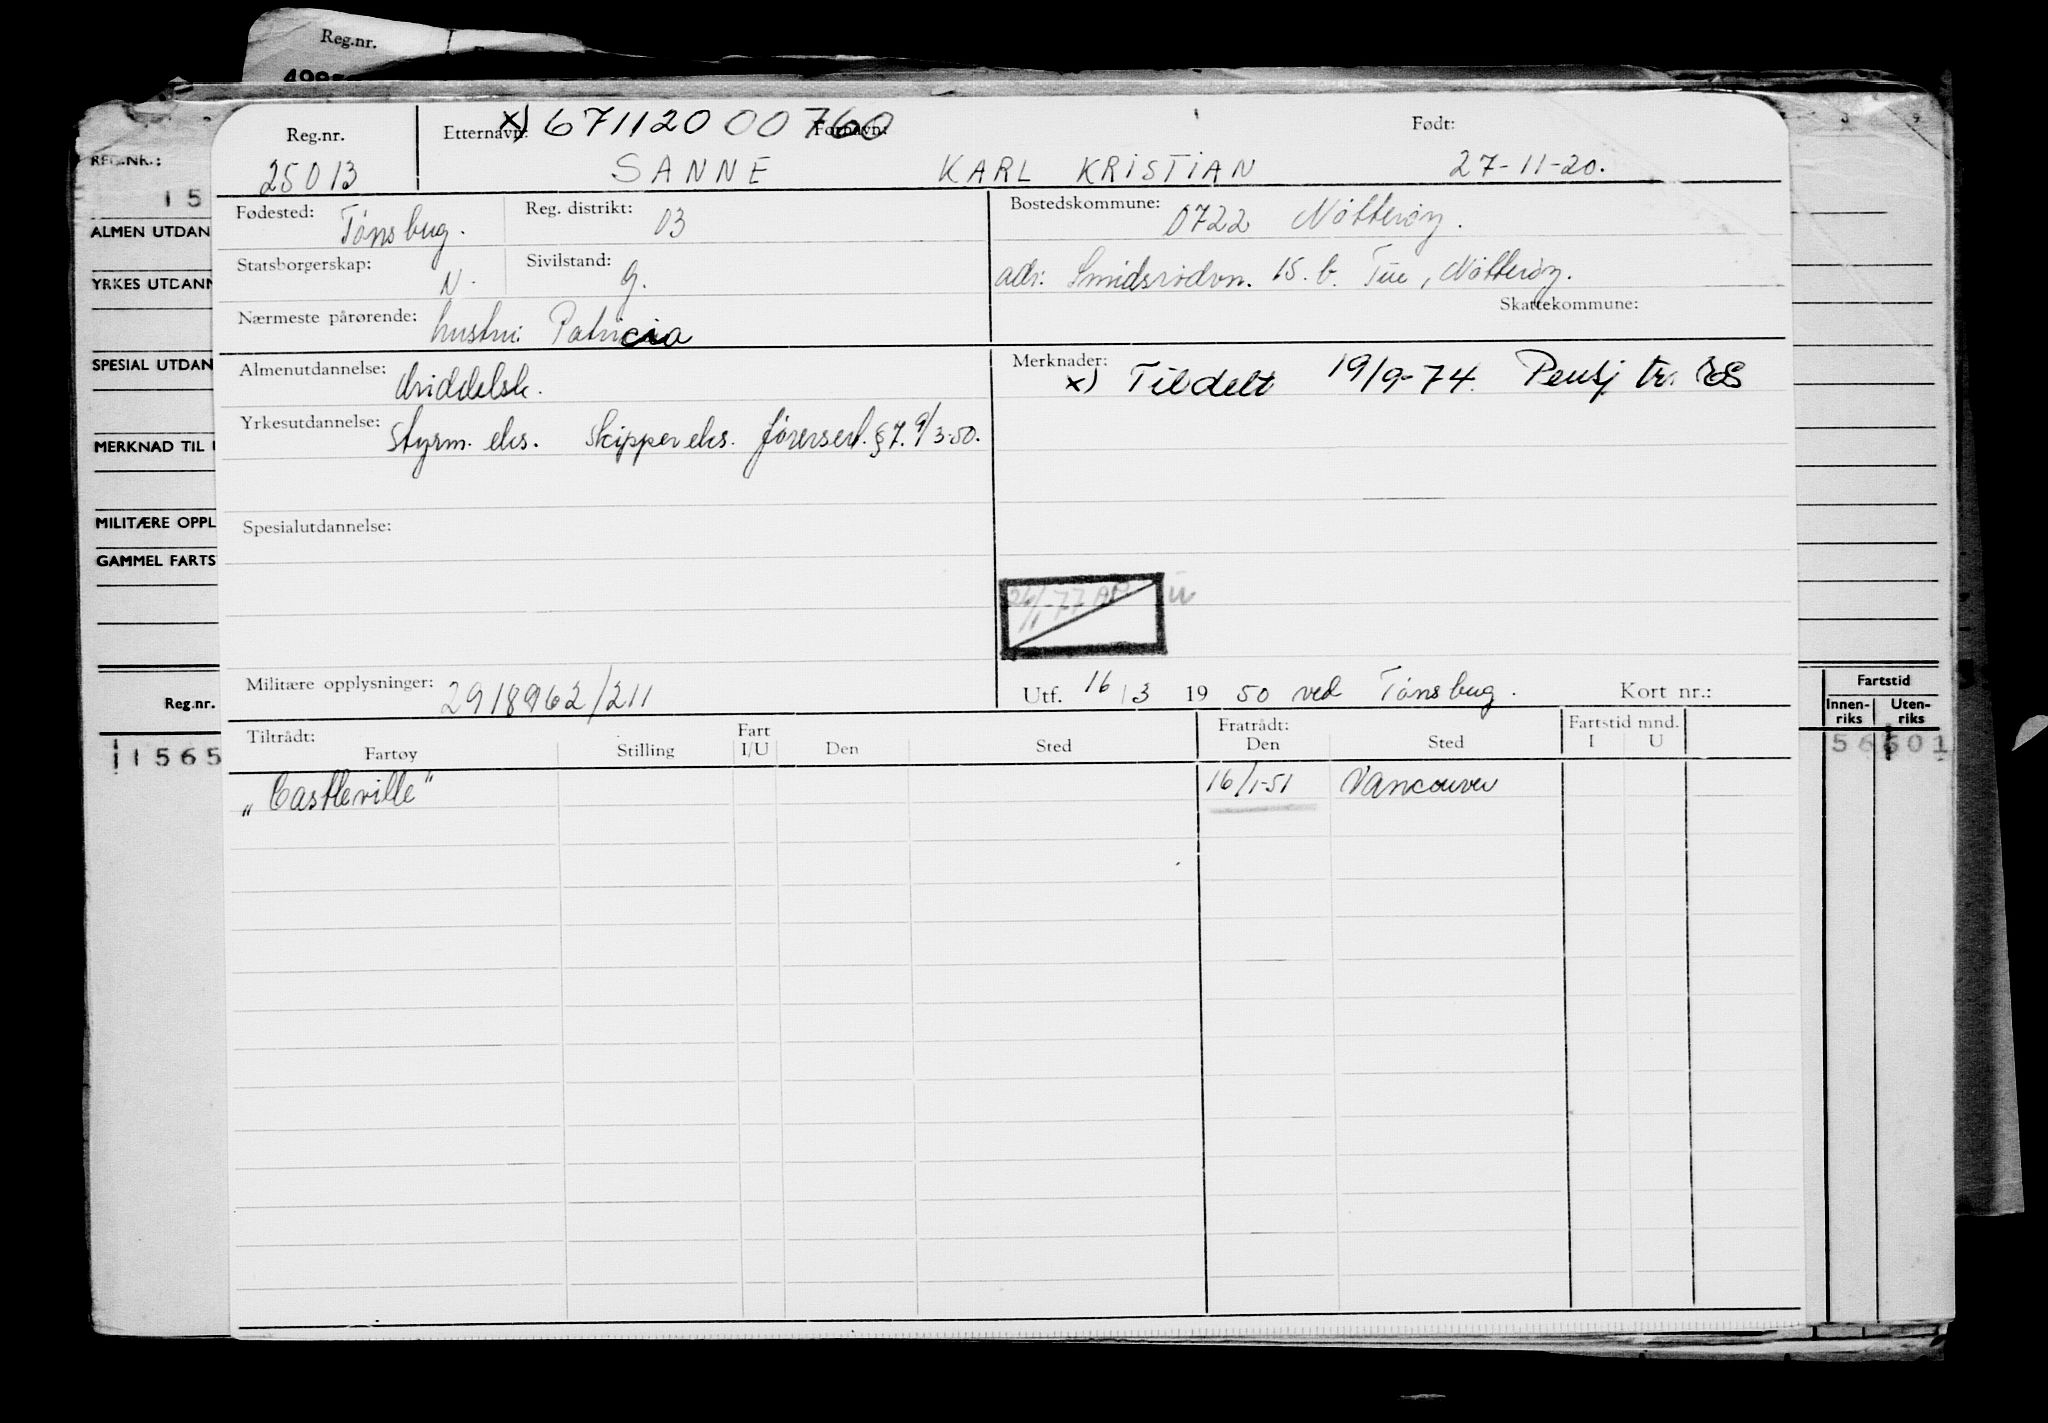 Reg.nr.
REG.NR.:
15
ALMEN UTDAN
YRKES UTDANN
SPESIAL UTDAN
MERKNAD TIL
MILITÆRE OPPL
GAMMEL FARTS
Reg.nr.
11565
Reg.nr. Etternavn: x) 67112000760 Fornavn: Født:
25013 SANNE KARL KRISTIAN 27-11-20.
Fødested: Tønsbug. Reg. distrikt: 03 Bostedskommune: 0722 Nøtterøy.
Statsborgerskap: N. Sivilstand: g. adr: Smidsrødvn. 15. b. Tue, Nøtterøy.
Skattekommune:
Nærmeste pårørende: hustru: Patricia
Almenutdannelse: Middelsk. Merknader: x) Tildelt 19/9-74. Pensj tr.
Yrkesutdannelse: Styrm. eks. Skipper eks. førersert. §7. 9/3-50.
Spesialutdannelse:
26/1-77
Militære opplysninger: 2918962/211 Utf. 16/3 1950 ved Tønsbug. Kort nr.:
Tiltrådt: Fart Fratrådt: Fartstid mnd.
Fartøy Stilling I/U Den Sted Den Sted I U
„Castleville" 16/1-51 Vancouver
Fartstid
Innen-riks Uten-riks
56 601